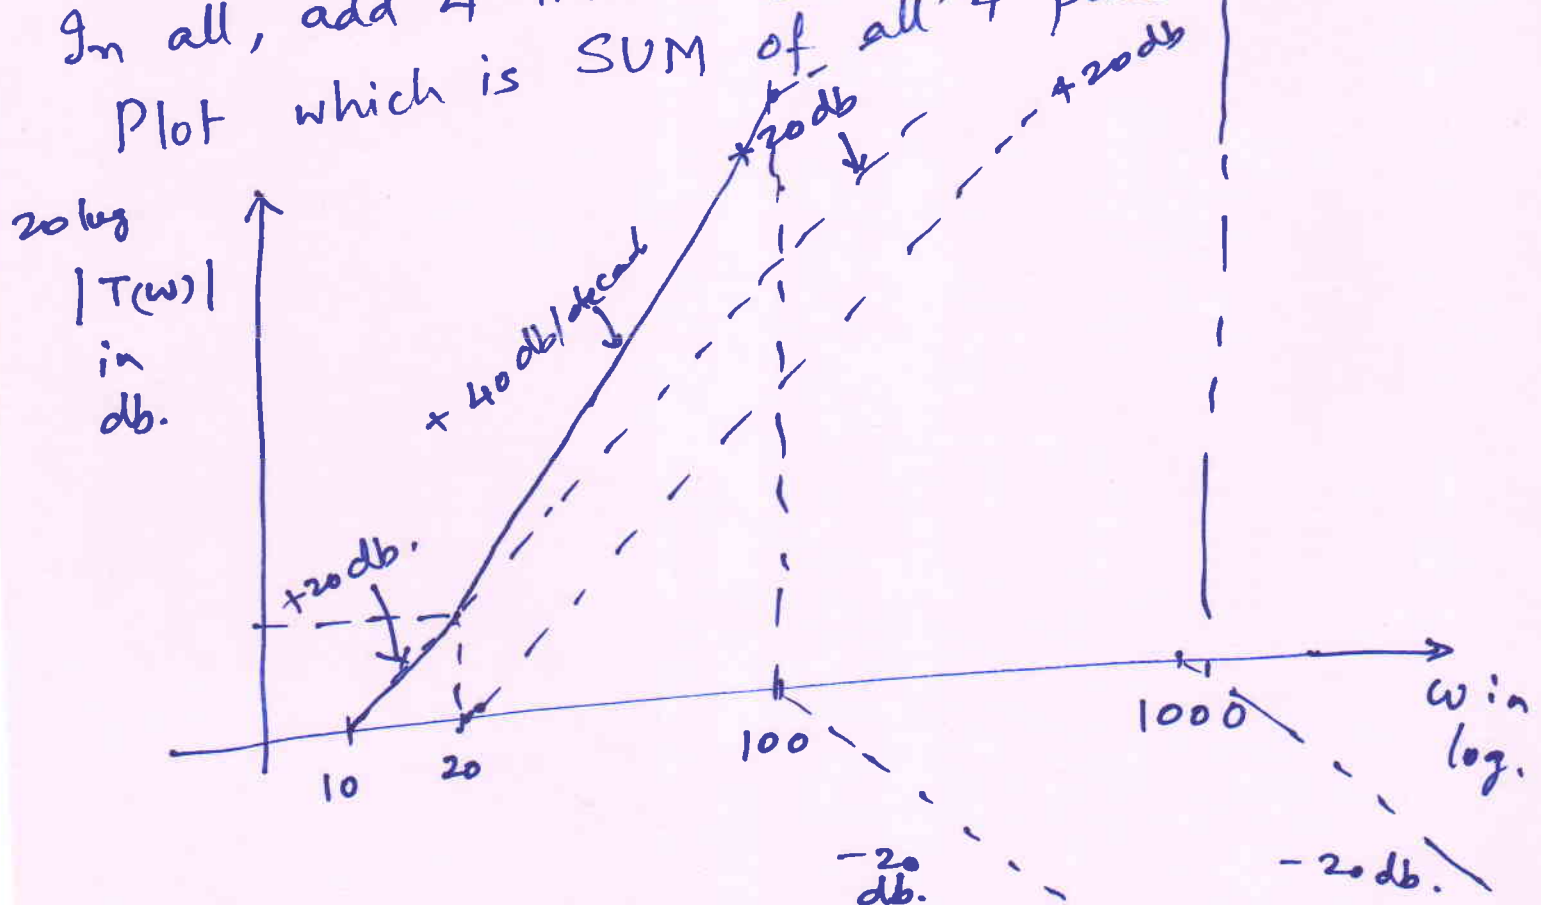 In all, add 4
Plot which is SUM of all 4
+20 db
20 db
20 log
|T(w)|
in
db.
+ 40 db/decad
+20 db.
10
20
100
1000
w in
log.
-20
db.
-20 db.